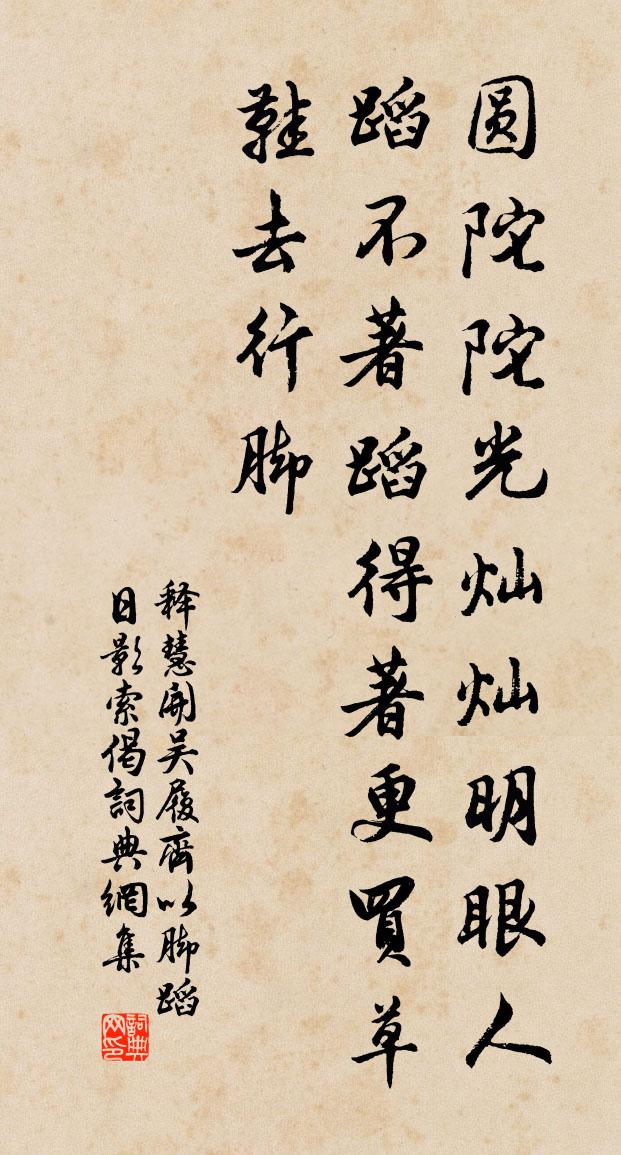 圆陀陀光灿灿明眼人
蹈不著蹈得著更買草
鞋去行脚
释慧開吴履齊以脚蹈
日影索偈詞典網集
詞典网印